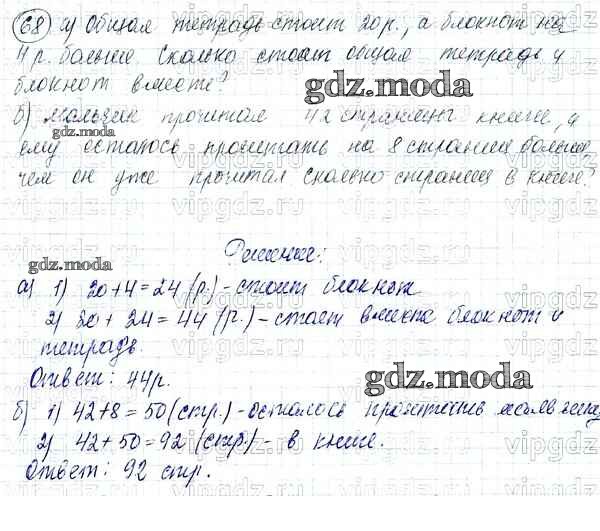 68 а) Общая тетрадь стоит 20 р., а блокнот на
4 р. больше. Сколько стоит общая тетрадь и
блокнот вместе?
gdz.moda
б) Мальчик прочитал 42 страницы книги, и
gdz.moda
ему осталось прочитать на 8 страниц больше,
чем он уже прочитал сколько страниц в книге?
Решение:
gdz.moda
а) 1) 20+4=24 (р.) - стоит блокнот
2) 20 + 24 = 44 (р.) - стоят вместе блокнот и
тетрадь.
Ответ: 44р.
gdz.moda
б) 1) 42+8 = 50 (стр.) - осталось прочитать
2) 42+50=92 (стр.) - в книге.
Ответ: 92 стр.